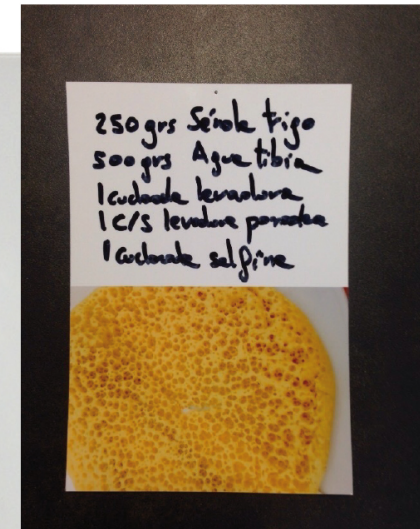 250 grs Sémola trigo
500 grs Agua tibia
1 cucharada levadura
1 C/S levadura panadera
1 cucharada sal fina